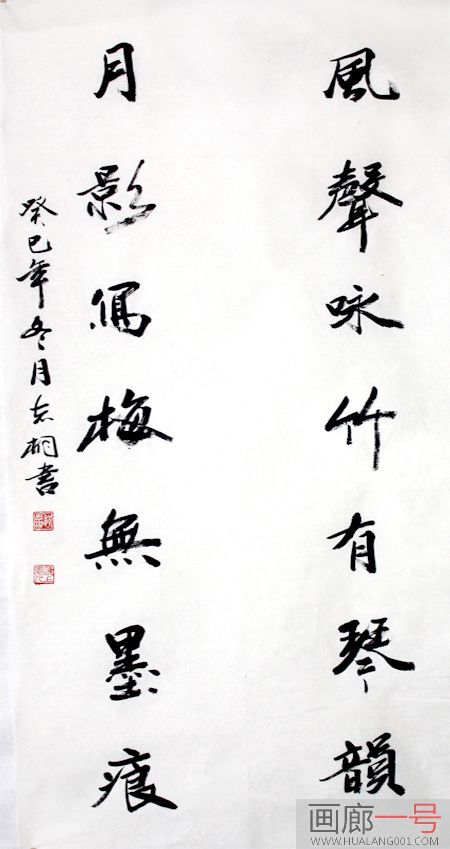 風聲咏竹有琴韻
月影寫梅無墨痕
癸巳年冬月志桐書
画廊一号
WWW.HUALANG001.COM